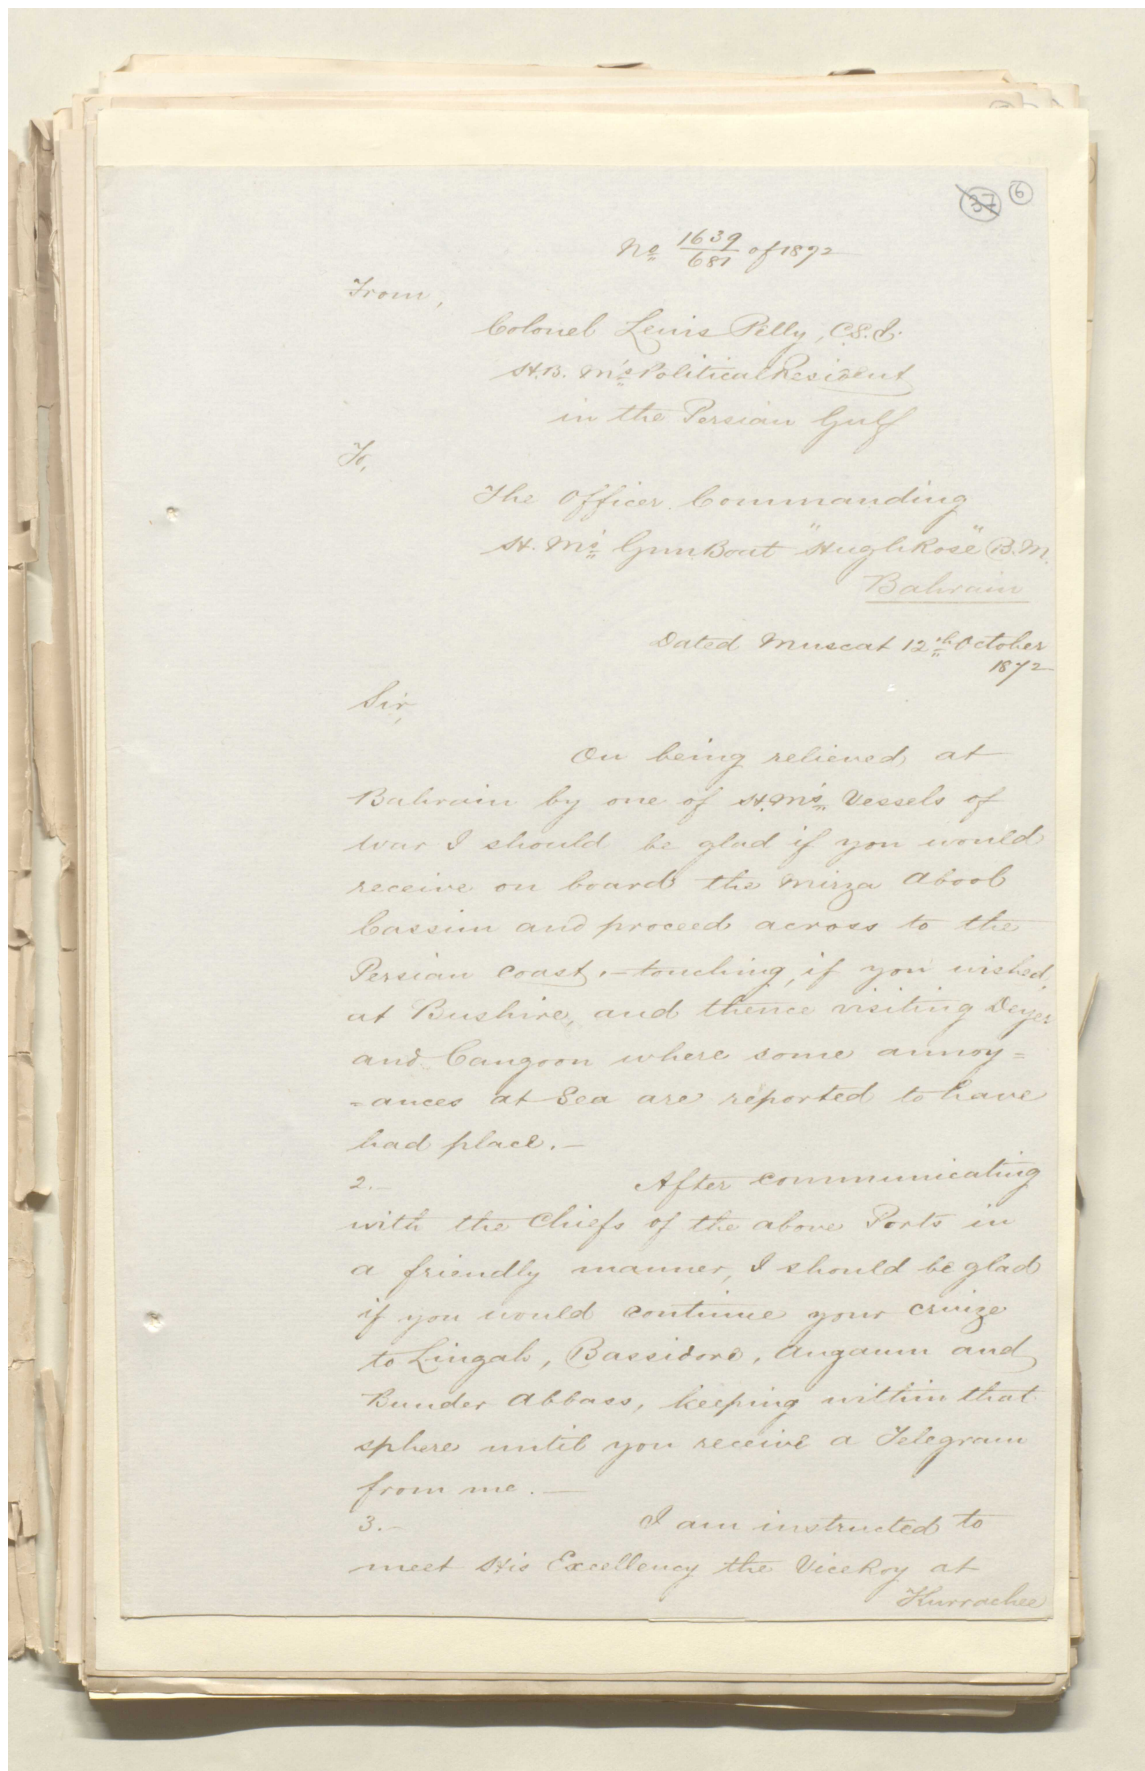 37 6
No 1639/681 of 1872
From,
Colonel Lewis Pelly, C.S.I.
H.B. M's Political Resident
in the Persian Gulf
To,
The Officer Commanding
H. M's GunBoat "Hugh Rose" B.M.
Bahrain
Dated Muscat 12th October
1872
Sir,
On being relieved at
Bahrain by one of H.M's Vessels of
war I should be glad if you would
receive on board the Mirza Abool
Cassim and proceed across to the
Persian coast, touching, if you wished,
at Bushire, and thence visiting Deyer
and Cangoon where some annoy=
=ances at Sea are reported to have
had place.—
2.— After communicating
with the Chiefs of the above Ports in
a friendly manner, I should be glad
if you would continue your cruize
to Lingah, Bassidore, Angaum and
Bunder Abbass, keeping within that
sphere until you receive a Telegram
from me.—
3.— I am instructed to
meet His Excellency the ViceRoy at
Kurrachee